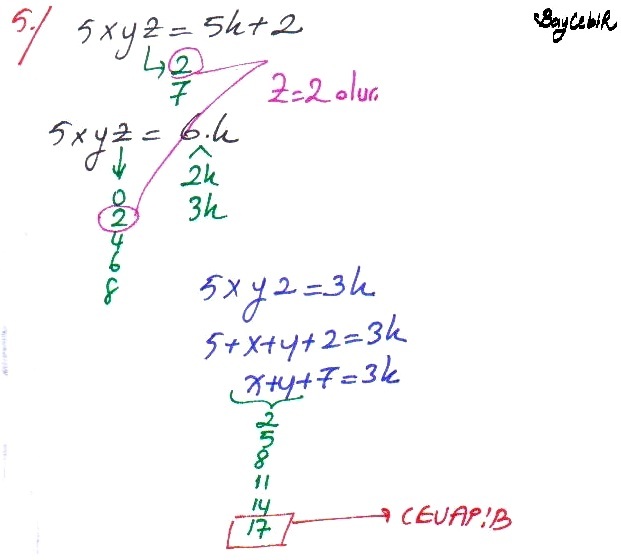 5./ 5xyz = 5k+2
BayCebiR
2
7
z=2 olur.
5xyz = 6.k
2k
3k
0
2
4
6
8
5xy2 = 3k
5+x+y+2=3k
x+y+7=3k
2
5
8
11
14
17
CEVAP:B